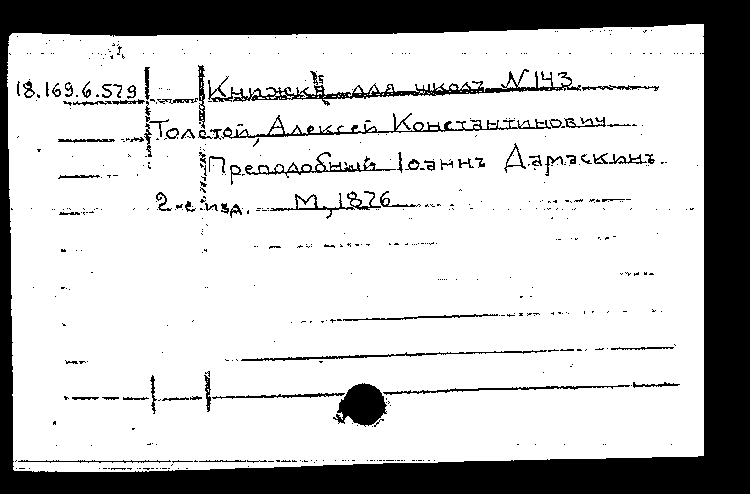 18.169.6.579 Книжка для школъ N143
Толстой, Алексей Константинович
Преподобный Іоаннъ Дамаскинъ.
2-е изд. М, 1876